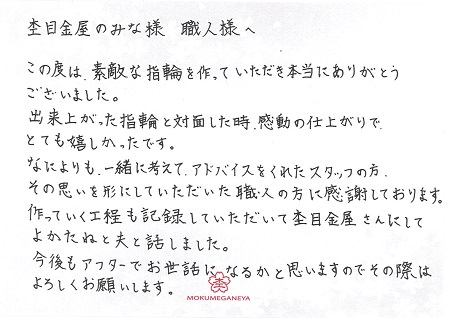 杢目金屋のみな様 職人様へ
この度は、素敵な指輪を作っていただき本当にありがとう
ございました。
出来上がった指輪と対面した時、感動の仕上がりで、
とても嬉しかったです。
なによりも、一緒に考えて、アドバイスをくれたスタッフの方、
その思いを形にしていただいた職人の方に感謝しております。
作っていく工程も記録していただいて杢目金屋さんにして
よかたねと夫と話しました。
今後もアフターでお世話になるかと思いますのでその際は
よろしくお願いします。
MOKUMEGANEYA